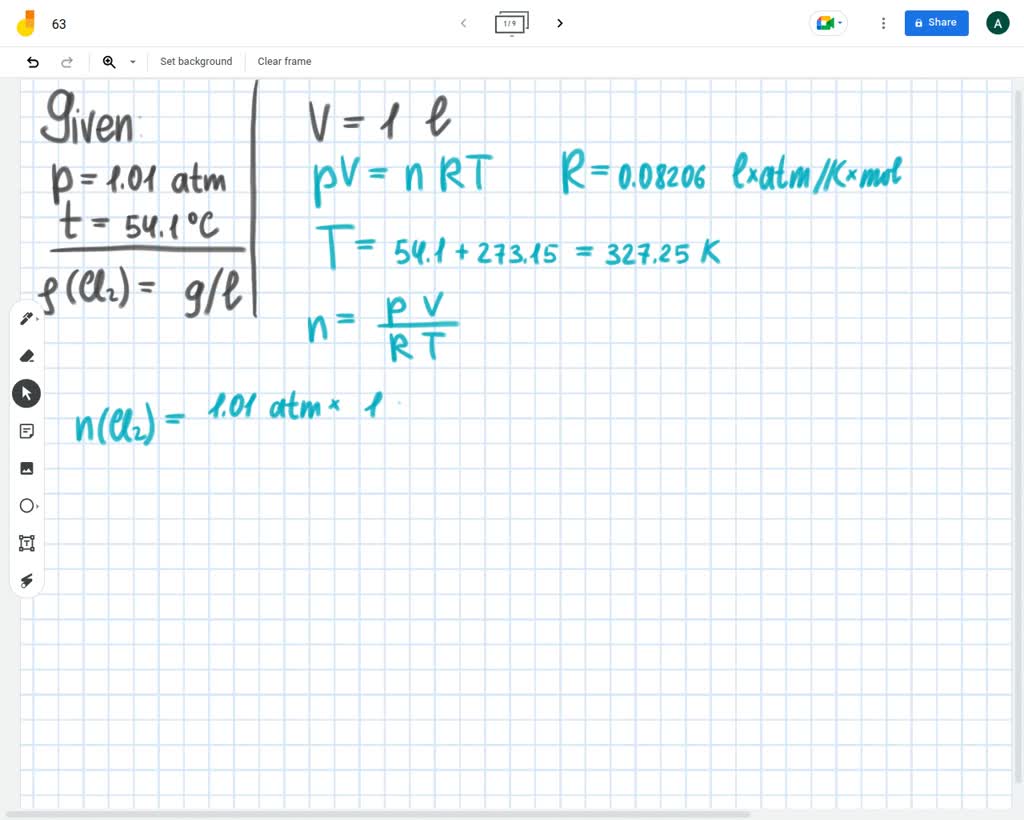 63
1/9
Share
A
Set background
Clear frame
Given:
p = 1.01 atm
t = 54.1 °C
ρ(Cl₂) = g/l
V = 1 l
pV = n RT
R = 0.08206 l×atm/K×mol
T = 54.1 + 273.15 = 327.25 K
n = pV / RT
n(Cl₂) = 1.01 atm × 1